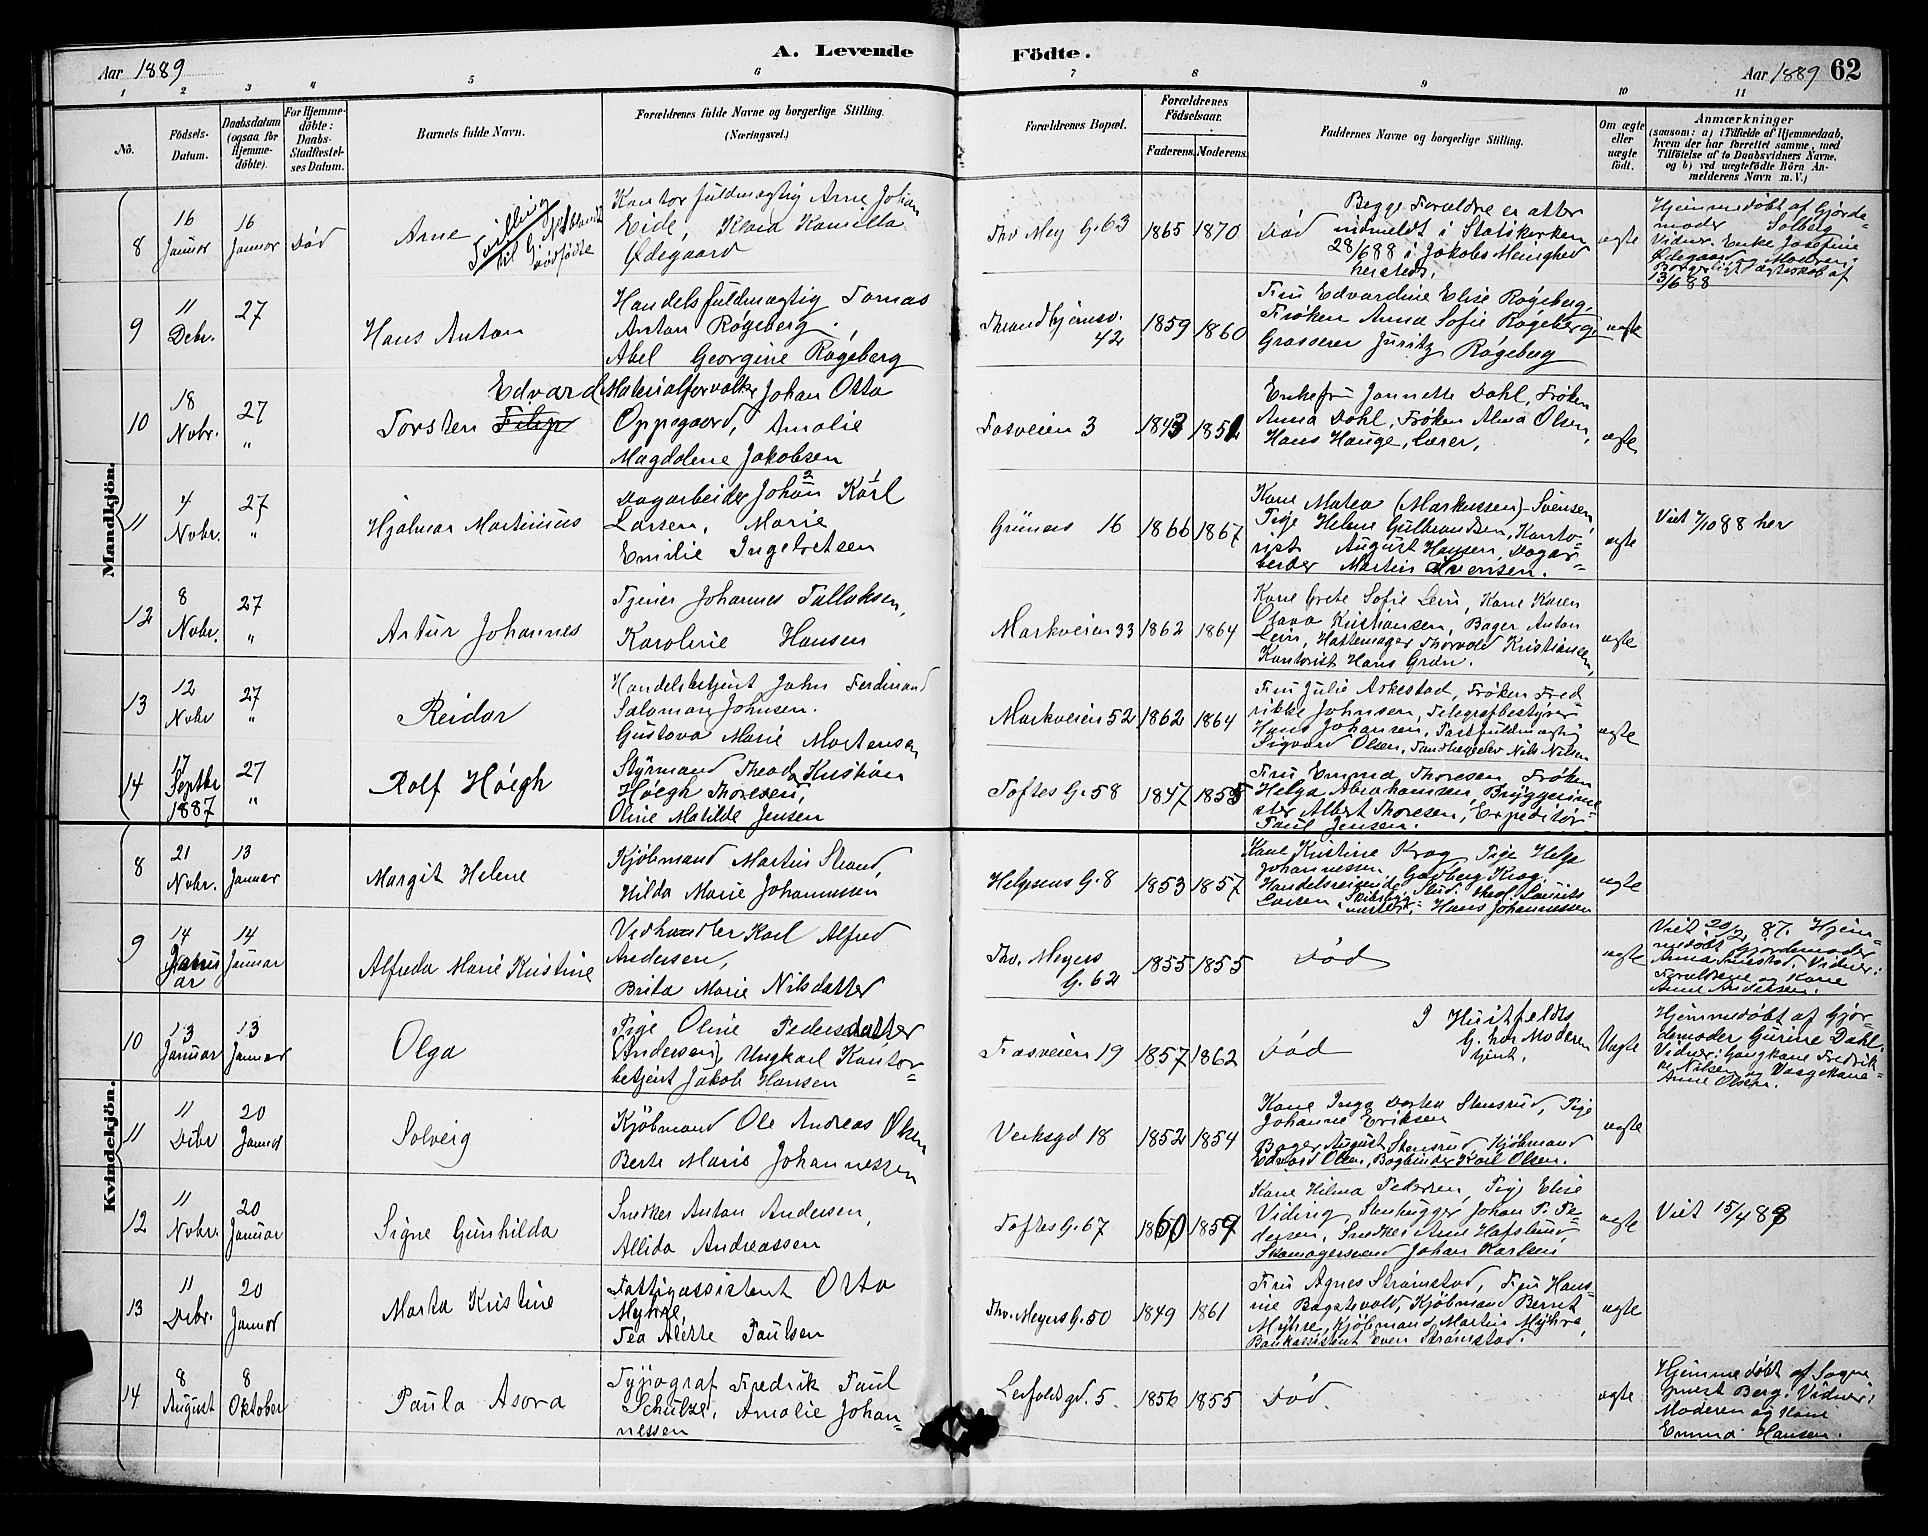 A. Levende Födte.
Aar 1889
Aar 1889 62
1 2 3 4 5 6 7 8 9 10 11
No.
Födsels-Datum.
Daabsdatum (ogsaa for Hjemme-döbte).
For Hjemme-döbte: Daabs-Stadfæstel-ses Datum.
Barnets fulde Navn.
Forældrenes fulde Navne og borgerlige Stilling. (Næringsvei.)
Forældrenes Bopæl.
Forældrenes Födselsaar.
Faderens. Moderens.
Faddernes Navne og borgerlige Stilling.
Om ægte eller uægte födt.
Anmærkninger
(saasom: a) i Tilfælde af Hjemmedaab, hvem der har forrettet samme, med Tilföielse af to Daabsvidners Navne, og b) ved uægtefödte Börn An-melderens Navn m. V.)
Mandkjön.
8
16 Januar
16 Januar
Död
Arne
Tvilling
til G.
dödfödte
Kontorfuldmægtig Arne Johan
Eide, Klara Kamilla
Ødegaard
Thv Mey G. 63
1865
1870
Död
Begge Foreldre er atter
indmeldt i Statskirken
28/6 88 i Jakobs Menighed
ægte
Hjemmedøbt af Gjorde
moder Solberg
Vidner. Enke Josefine
Ødegaard og Moderen.
Borgerligt ægteskab af
13/6 88
9
11 Debr.
27
Hans Anton
Handelsfuldmægtig Tomas
Anton Røgeberg.,
Abel Georgine Røgeberg
Throndhjemsv. 42
1859
1860
Fru Edvardine Elise Røgeberg,
Frøken Anna Sofie Røgeberg,
Grosserer Juritz Røgeberg
ægte
10
18 Nvbr.
27 "
Edvard
Torsten Filip
Materialforvalter Johan Otto
Oppegaard, Amalie
Magdolene Jakobsen
Fosveien 3
1843
1851
Enkefru Jannette Dahl, Frøken
Anna Dahl, Frøken Alma Olsen,
Hans Hauge, Lærer,
ægte
11
4 Nvbr.
27 "
Hjalmar Martinius
Dagarbeider Johan Karl
Larsen, Marie
Emilie Ingebretsen
Grüners 16
1866
1867
Kone Matea (Markussen) Svensen,
Pige Helene Gulbrandsen, Konto-
rist August Hansen, Dagar-
beider Martin Svensen.
ægte
Viet 7/10 88 her
12
8 Nvbr.
27 "
Artur Johannes
Tjener Johannes Tallaksen,
Karoline Hansen
Markveien 33
1862
1864
Kone Grete Sofie Lein, Kone Karen
Olava Kristiansen, Bager Anton
Lein, Hattemager Thorvald Kristiansen,
Kontorist Hans Grøn.
ægte
13
12 Nvbr
27 "
Reidar
Handelsbetjent John Ferdinand
Salomon Johnsen.
Gustava Marie Mortensen
Markveien 52
1862
1864
Fru Julie Askestad, Frøken Fred
rikke Johnsen, Telegrafbestyrer
Hans Johansen, Postfuldmægtig
Sigvard Olsen, Nils Nilsen
ægte
14
17 Septbr 1887
27 "
Rolf Höegh
Styrmand Theodor Kristian
Höegh Thoresen,
Oline Matilde Jensen
Toftes G. 58
1847
1855
Fru Emma Thoresen, Frøken
Helga Abrahamsen, Bryggerime-
ster Albert Thoresen, Expeditør
Paul Jensen.
Kvindekjön.
8
21 Nvbr.
13 Januar
Margit Helene
Kjöbmand Martin Strand,
Hilda Marie Johannessen
Helgesens G. 8
1853
1857
Kone Kristine Krog, Pige Helga
Johannessen, Godberg Krog,
Handelsreisende, Stud. theol. Laurits
Larsen, Hans Johannessen
ægte
9
14 Januar
14 Januar
Alfreda Marie Kristine
Vedhandler Karl Alfred
Andersen,
Brita Marie Nilsdatter
Thv. Meyers G. 62
1855
1855
Död
ægte
Viet 87. Hjem-
medøbt Gjordemoder
Anna Vidner:
Foreldrene og Kone
Anne Andersen.
10
13 Januar
13 Januar
Olga
Pige Oline Pedersdatter
(Andersen), Ungkarl Kontor-
betjent Jakob Hansen
Fosveien 19
1857
1862
Död
I Huitfeldts
G. har Moderen
tjent.
Uægte
Hjemmedøbt af Gjor-
demoder Gurine Dahl.
Vidner: Gangkone Fredrik-
ke Nilsen og Vaagekone
Anne Olsen.
11
11 Debr
20 Januar
Solveig
Kjöbmand Ole Andreas Olsen
Berte Marie Johannessen
Verksgd 18
1852
1854
Kone Inga Dortea Stensrud, Pige
Johanne Eriksen
Bager August Stensrud, Kjöbmand
Edvard Olsen, Bogbinder Karl Olsen.
ægte
12
11 Nvbr.
20 Januar
Signe Gunhilda
Snedker Anton Andersen,
Allida Andreassen
Toftes G. 67
1860
1859
Kone Hilma Pedersen, Pige Elise
Viding, Stenhugger Johan P. Pe-
dersen, Snedker Arne Hafslund,
Skomagersvend Johan Karlsen
ægte
Viet 15/4 88
13
11 Debr.
20 Januar
Marta Kristine
Fattigassistent Otto
Myhre,
Tea Alette Paulsen
Thv. Meyers G. 50
1849
1861
Fru Agnes Strømstad, Fru Han-
ne Bogatvold, Kjöbmand Berret
Myhre, Kjöbmand Martin Myhre,
Bankassistent Even Strømstad.
ægte
14
8 August
8 Oktober
Paula Asora
Typograf Fredrik Paul
Schulze, Amalie Johan-
nessen
Leirfaldsgd. 5
1856
1855
Död.
ægte
Hjemmedøbt af Sogne
prest Berg. Vidner:
Moderen og Kone
Emma Hansen.